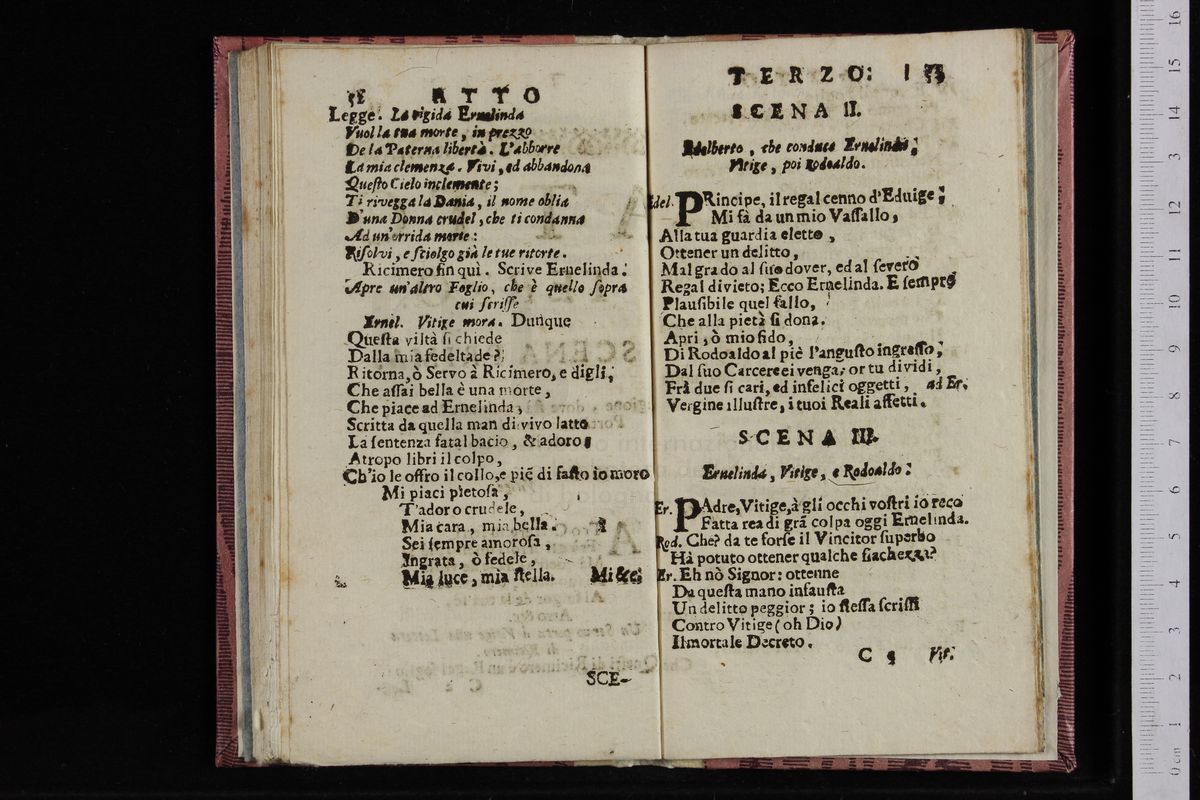 ATTO
Legge. La rigida Ernelinda
Vuol la tua morte, in prezzo
De la Paterna libertà. L'abborre
La mia clemenza. Vivi, ed abbandona
Questo Cielo inclemente;
Ti rivegga la Dania, il nome oblia
D'una Donna crudel, che ti condanna
Ad un'orrida morte:
Risolvi, e sciolgo già le tue ritorte.
Ricimero fin quì. Scrive Ernelinda.
Apre un'altro Foglio, che è quello sopra
cui scrisse
Ernel. Vitige mora. Dunque
Questa viltà si chiede
Dalla mia fedeltade?
Ritorna, ò Servo à Ricimero, e digli,
Che assai bella è una morte,
Che piace ad Ernelinda,
Scritta da quella man di vivo latto
La sentenza fatal bacio, & adoro;
Atropo libri il colpo,
Ch'io le offro il collo, e piē di fasto io moro
Mi piaci pietosa,
T'adoro crudele,
Mia cara, mia bella.
Sei sempre amorosa,
Ingrata, ò fedele,
Mia luce, mia stella. Mi &c.
SCE-
TERZO:
SCENA II.
Edelberto, che conduce Ernelinda;
Vitige, poi Rodoaldo.
Edel. PRincipe, il regal cenno d'Eduige;
Mi fà da un mio Vassallo,
Alla tua guardia eletto,
Ottener un delitto,
Malgrado al suo dover, ed al severo
Regal divieto; Ecco Ernelinda. E sempre
Plausibile quel fallo,
Che alla pietà si dona.
Apri, ò mio fido,
Di Rodoaldo al piè l'angusto ingresso,
Dal suo Carcere ei venga; or tu dividi,
Frà due sì cari, ed infelici oggetti, ad Er.
Vergine illustre, i tuoi Reali affetti.
SCENA III.
Ernelinda, Vitige, e Rodoaldo.
Er. PAdre, Vitige, à gli occhi vostri io reco
Fatta rea di grã colpa oggi Ernelinda.
Rod. Che? da te forse il Vincitor superbo
Hà potuto ottener qualche fiachezza?
Er. Eh nò Signor: ottenne
Da questa mano infausta
Un delitto peggior; io stessa scrissi
Contro Vitige (oh Dio)
Il mortale Decreto.
C Vit.